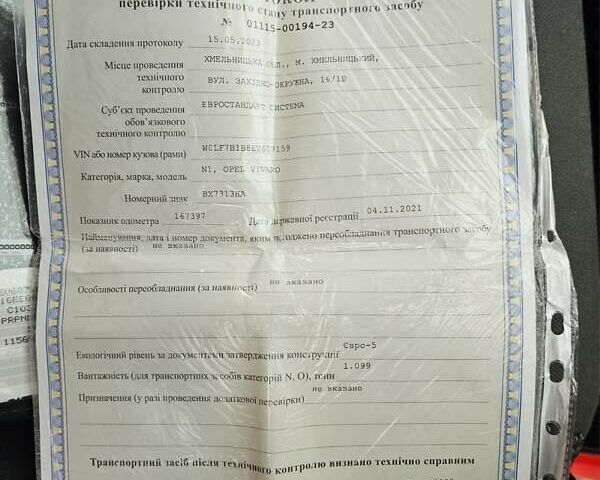 перевірки технічного стану транспортного засобу
№ 01115-00194-23
Дата складення протоколу 15.05.2023
Місце проведення технічного контролю
ХМЕЛЬНИЦЬКА ОБЛ., М. ХМЕЛЬНИЦЬКИЙ,
ВУЛ. ЗАХІДНО-ОКРУЖНА, 16/1D
Суб'єкт проведення обов'язкового технічного контролю
ЕВРОСТАНДАРТ СИСТЕМА
VIN або номер кузова (рами)
Категорія, марка, модель N1, OPEL VIVARO
Номерний знак BX7313HA
Показник одометра 167397 Дата державної реєстрації 04.11.2021
Найменування, дата і номер документа, яким погоджено переобладнання транспортного засобу
(за наявності) не вказано
Особливості переобладнання (за наявності) не вказано
Екологічний рівень за документами затвердження конструкції Євро-5
Вантажність (для транспортних засобів категорій N, O), тонн 1.099
Призначення (у разі проведення додаткової перевірки) не вказано
Транспортний засіб після технічного контролю визнано технічно справним